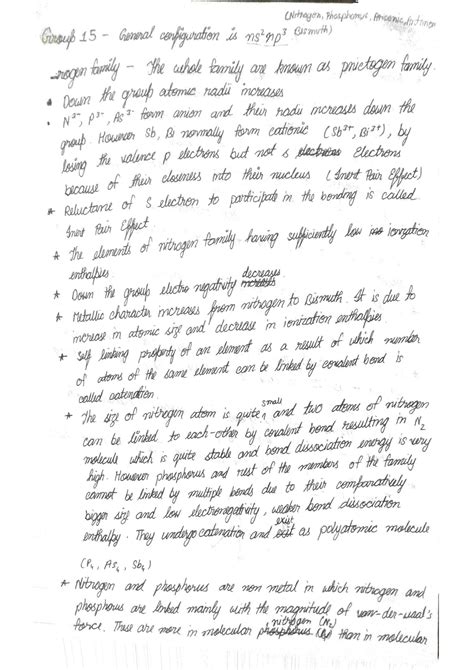 (Nitrogen, Phosphorus, Arsenic, Antimon
Group 15 - General configuration is ns²np³ Bismuth)
rogen family - The whole family are known as pnictogen family.
• Down the group atomic radii increases
• N³⁻, P³⁻, As³⁻ form anion and their radii increases down the
group. However Sb, Bi normally form cationic (Sb³⁺, Bi³⁺), by
losing the valence p electrons but not s electrons Electrons
because of their closeness into their nucleus (Inert Pair Effect)
* Reluctance of S electron to participate in the bonding is called
Inert Pair Effect
* The elements of nitrogen family having sufficiently low ionization
enthalpies.
* Down the group electro negativity decreases
* Metallic character increases from nitrogen to Bismuth. It is due to
increase in atomic size and decrease in ionization enthalpies
* Self linking property of an element as a result of which number
of atoms of the same element can be linked by covalent bond is
called catenation.
* The size of nitrogen atom is quite small and two atoms of nitrogen
can be linked to each-other by covalent bond resulting in N₂
molecule which is quite stable and bond dissociation energy is very
high. However phosphorus and rest of the members of the family
cannot be linked by multiple bonds due to their comparatively
bigger size and low electronegativity, weaker bond dissociation
enthalpy. They undergo catenation and exist as polyatomic molecule
(P₄, As₄, Sb₄)
* Nitrogen and phosphorus are non metal in which nitrogen and
phosphorus are linked mainly with the magnitude of van-der-waal's
force. These are more in molecular nitrogen (N₂) than in molecular